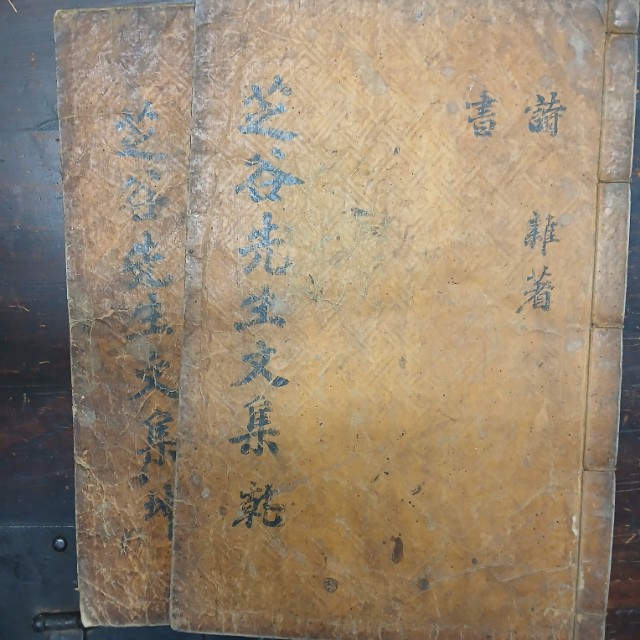 詩 雜著
書
芝谷先生文集 乾
芝谷先生文集